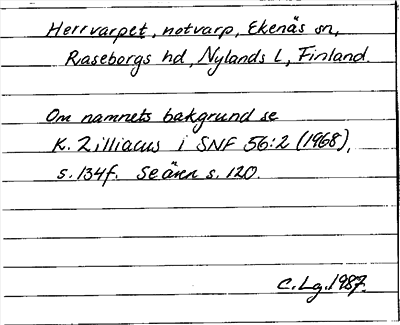 Herrvarpet, notvarp, Ekenäs sn,
Raseborgs hd, Nylands L, Finland.
Om namnets bakgrund se
K. Zilliacus i SNF 56:2 (1968),
s. 134f. Se även s. 120.
C. Lg. 1987.